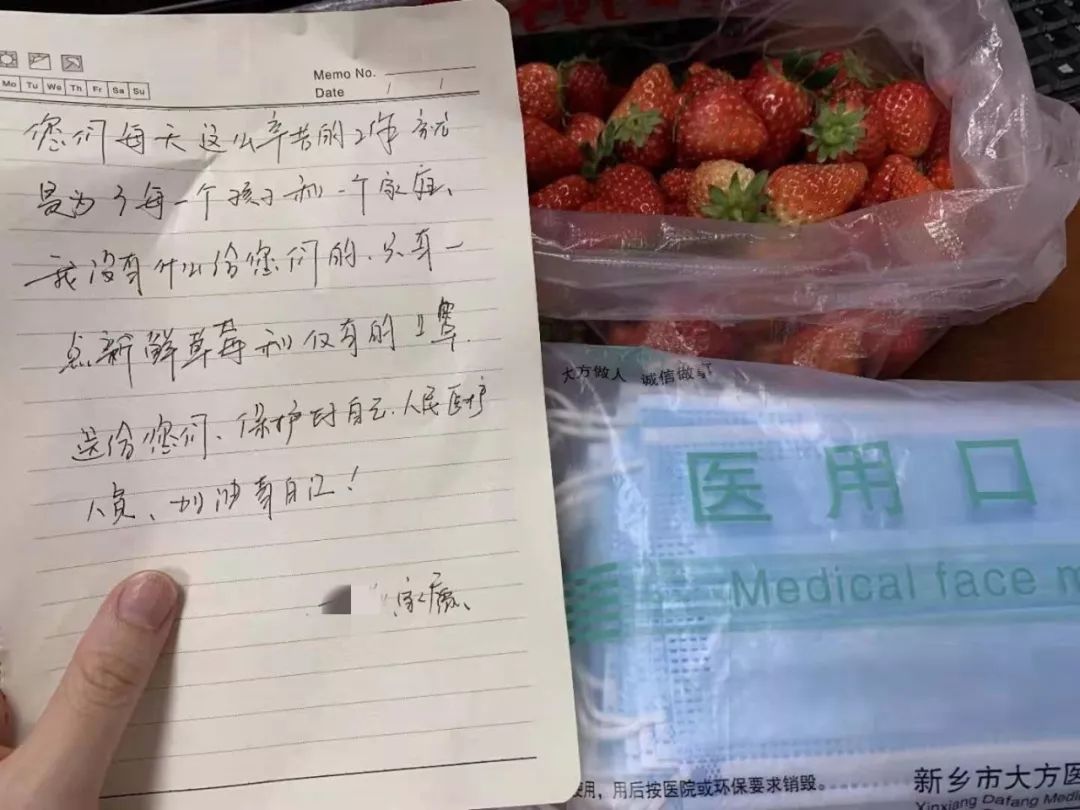 Mo Tu We Th Fr Sa Su
Memo No.
Date / /
您们每天这么辛苦的工作就
是为了每一个孩子和一个家庭、
我没有什么给您们的、只有一
点新鲜草莓和仅有的口罩.
送给您们、保护好自己、人民医护
人员、加油有自江!
家属、
大方做人 诚信做事
医用口
Medical face m
使用，用后按医院或环保要求销毁。
新乡市大方医
Xinxiang Dafang Medi